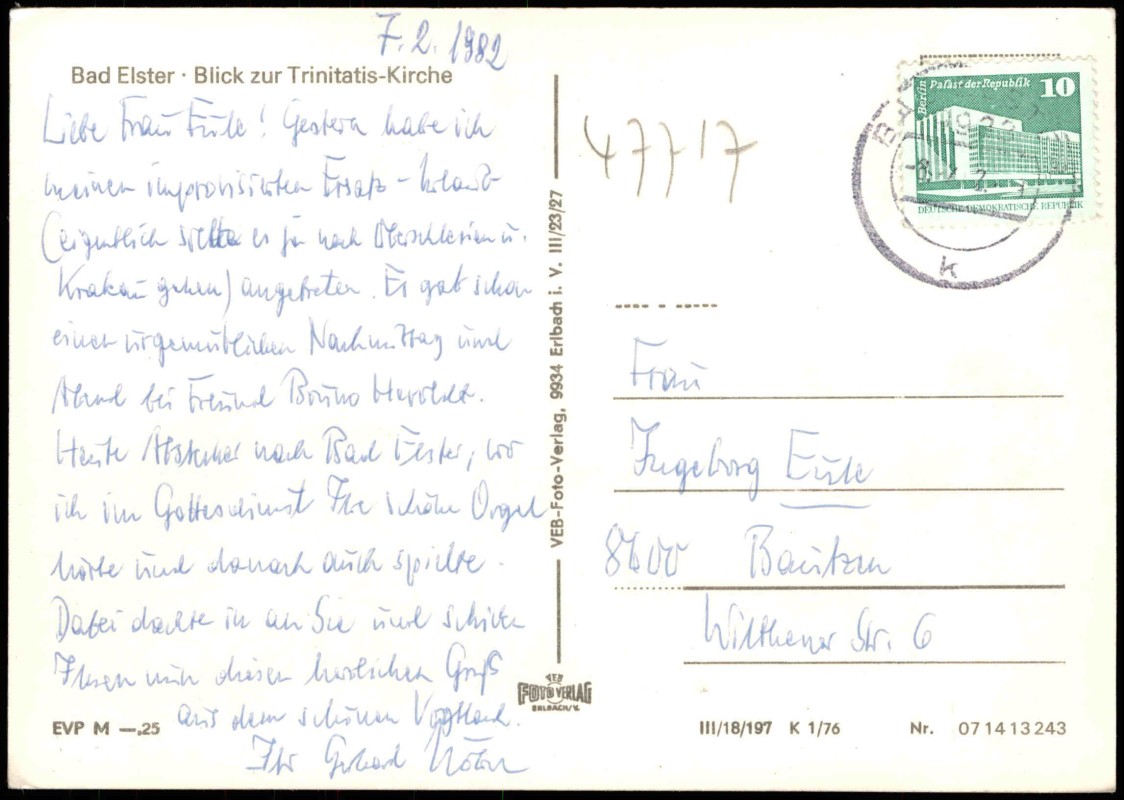 7. 2. 1982
Bad Elster · Blick zur Trinitatis-Kirche
Liebe Frau Eule! Gestern habe ich
meinen improvisierten Ersatz-Urlaub
(eigentlich sollte es ja nach Oberschlesien u.
Krakau gehen) angetreten. Es gab schon
einen urgemütlichen Nachmittag und
Abend bei Freund Bruno Herold.
Heute Abstecher nach Bad Elster, wo
ich im Gottesdienst Ihre schöne Orgel
hörte und danach auch spielte.
Dabei dachte ich an Sie und schicke
Ihnen nun diesen herzlichen Gruß
aus dem schönen Vogtland.
Ihr Gerhard
EVP M —,25
VEB-Foto-Verlag, 9934 Erlbach i. V. III/23/27
VEB
FOTO VERLAG
ERLBACH/V.
47717
Berlin Palast der Republik 10
DEUTSCHE DEMOKRATISCHE REPUBLIK
k
Frau
Ingeborg Eule
8600 Bautzen
Wilthener Str. 6
III/18/197 K 1/76 Nr. 071413243